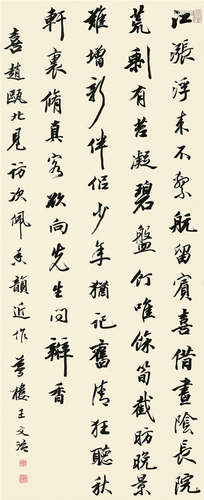 江漲浮來不繫航留賓喜借晝陰長院
荒剩有苔凝碧盤飣唯餘筍截肪晚景
雖增新伴侶少年猶記舊清狂聽秋
軒裏脩真客欲向先生問瓣香
喜趙甌北見訪次佩香韻近作夢樓王文治